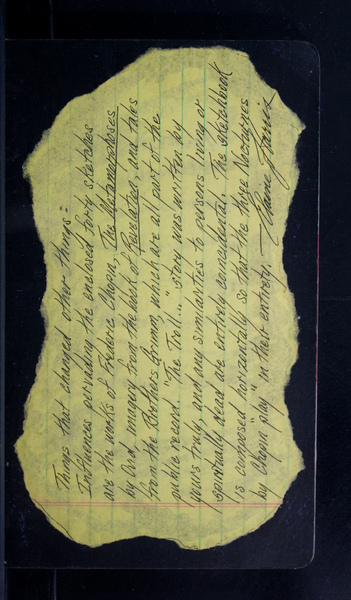 Things that changed other things:
Influences pervading the enclosed forty sketches
are the works of Frederic Chopin, The Metamorphoses
by Ovid, imagery from the book of Revelation, and tales
from the Brothers Grimm, which are all part of the
public record. "The Troll..." story was written by
yours truly, and any similarities to persons living or
spiritually dead are entirely coincidental. The sketchbook
is composed horizontally so that the three Nocturnes
by Chopin "play" in their entirety. — Elaine Harris